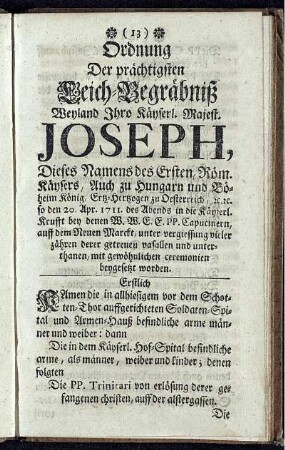 ❁ (13) ❁
Ordnung
Der prächtigsten
Leich-Begräbniß
Weyland Ihro Käyserl. Majest.
JOSEPH,
Dieses Namens des Ersten, Röm.
Käysers, Auch zu Hungarn und Bö-
heim König, Ertz-Hertzogen zu Oesterreich, ꝛc.ꝛc.
so den 20. Apr. 1711. des Abends in die Käyserl.
Krufft bey denen W. W. E. E. PP. Capucinern,
auff dem Neuen Marckt, unter vergiessung vieler
zähren derer getreuen vasallen und unter-
thanen, mit gewöhnlichen ceremonien
beygesetzt worden.
Erstlich
KAmen die in allhiesigem vor dem Schot-
ten-Thor auffgerichteten Soldaten-Spi-
tal und Armen-Hauß befindliche arme män-
ner und weiber: dann
Die in dem Käyserl. Hof-Spital befindliche
arme, als männer, weiber und kinder; denen
folgten
Die PP. Trinitari von erlösung derer ge-
fangenen christen, auff der alstergassen.
Die